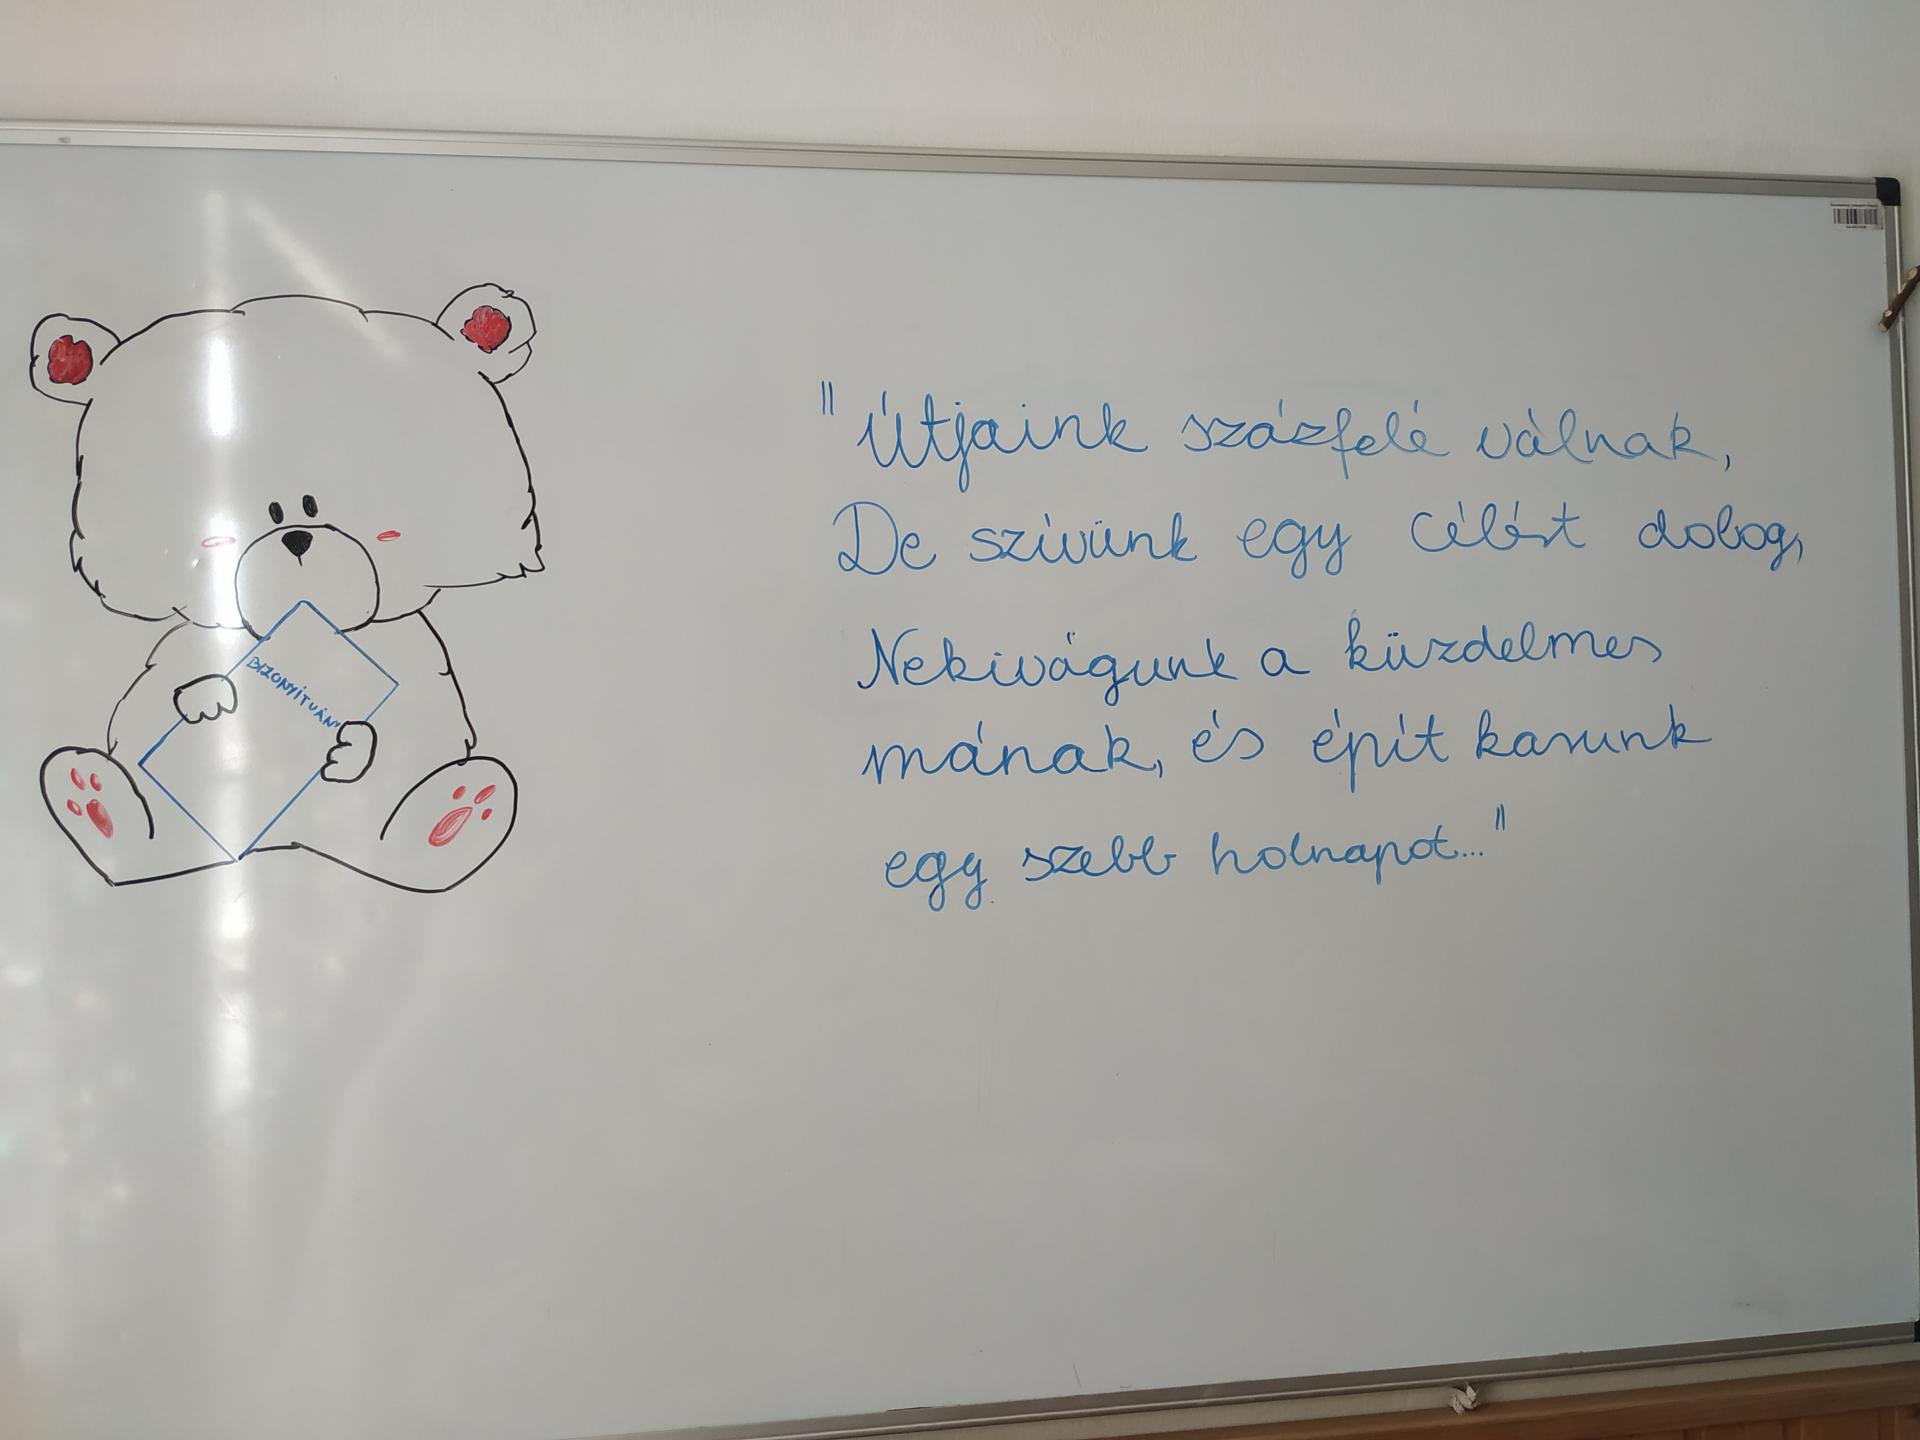 BIZONYÍTVÁNY
"Útjaink százfelé válnak,
De szívünk egy célért dobog,
Nekivágunk a küzdelmes
mának, és épít karunk
egy szebb holnapot..."